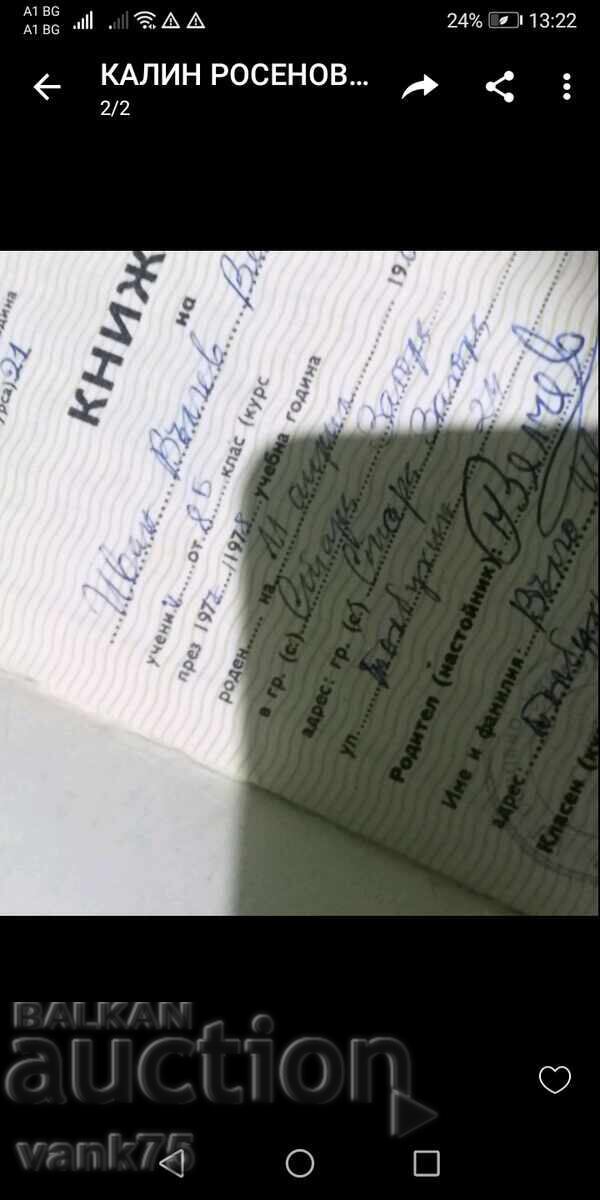 A1 BG
A1 BG
24% 13:22
КАЛИН РОСЕНОВ...
2/2
21
КНИЖ
на
Иван Вълчев
учени от 8 Б клас (курс
през 197 /1978 учебна година
роден на 11 април 19
в гр. (с) Стара Загора
адрес: гр. (с) Стара Загора
ул. Толбухин 24
Родител (настойник): Велчев
Име и фамилия: Вълчо
адрес: Толбухин
Класен (
BALKAN
auction
vank75